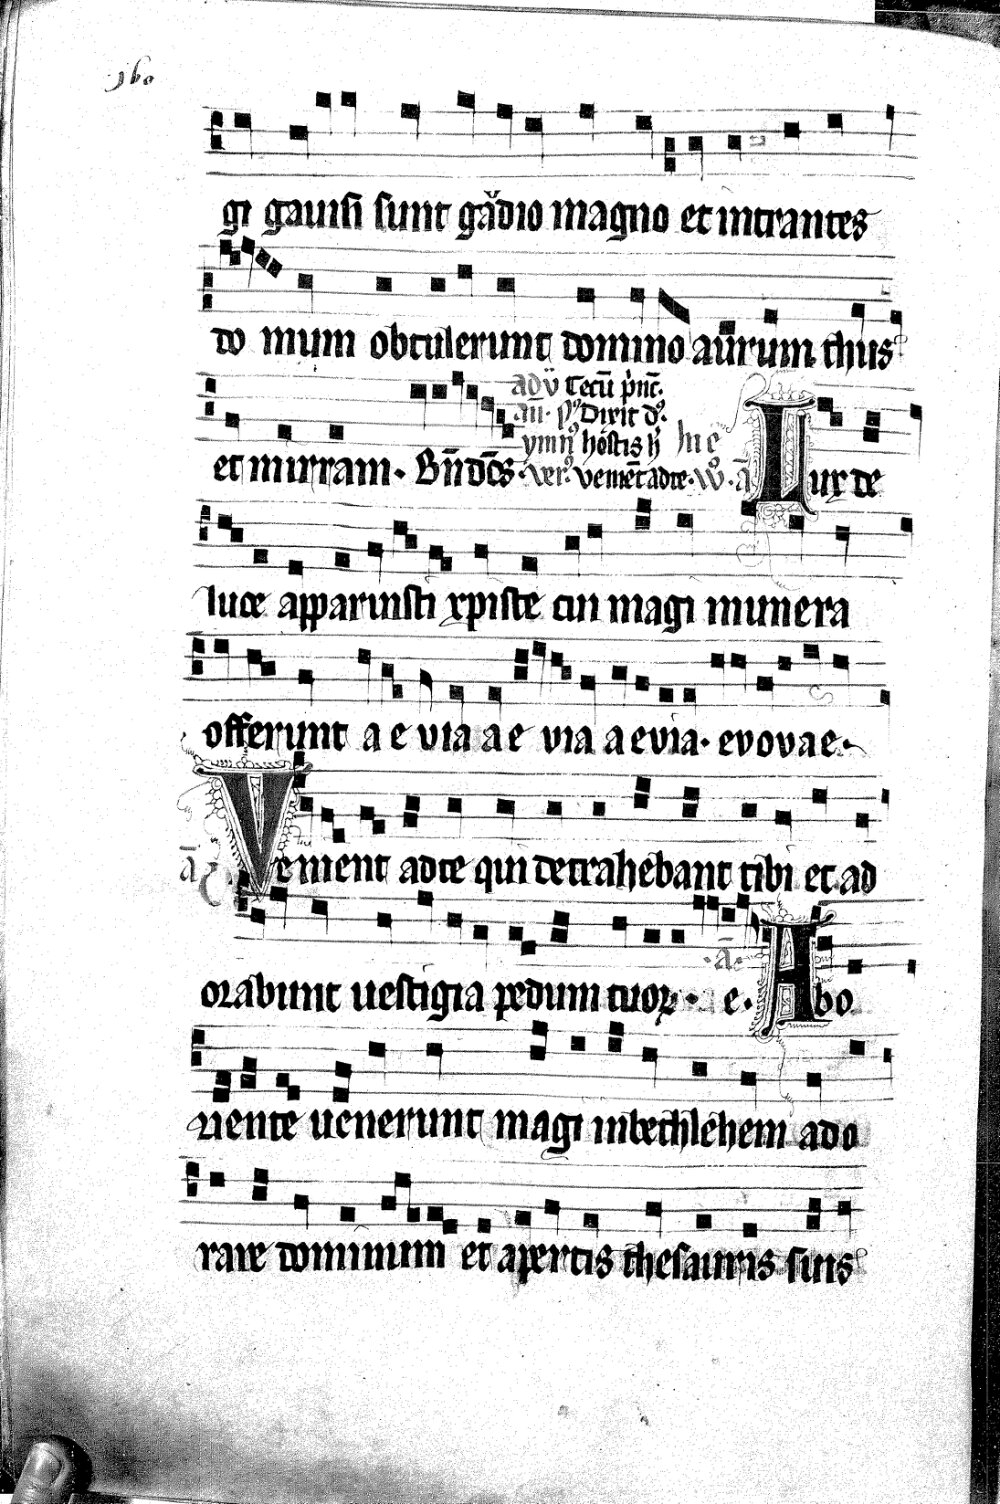 160
gi gauisi sunt gãdio magno et intrantes
do mum obtulerunt domino aurum thus
ad vꝰ Tecũ pͥnc̃.
añ. pꝰ Dixit dꝰ.
ymnꝰ hostis
et mirram. Bñdc̃s. verꝰ. veniẽt ad te. ã Lux de
luce apparuisti xpiste cui magi munera
offerunt a e via a e via a e via. evovae.
ã Venient ad te qui detrahebant tibi et ad
orabunt uestigia pedum tuoꝝ. e. ã Abo
riente uenerunt magi inbethlehem ado
rare dominum et apertis thesauris suis